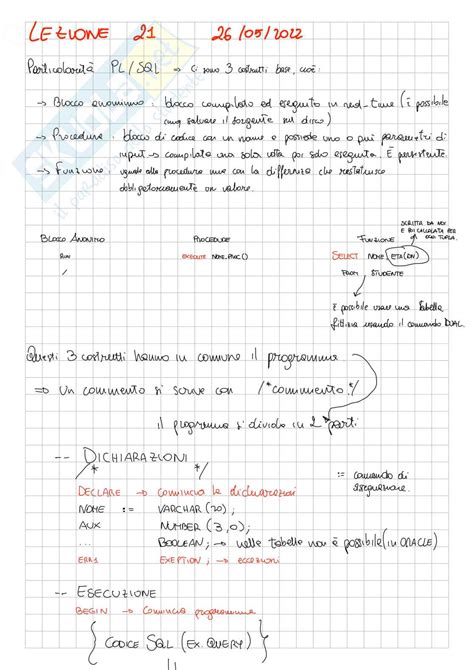 LEZIONE 21 26/05/2022
Particolarità PL/SQL → Ci sono 3 costrutti base, cioè:
→ Blocco anonimo: blocco compilato ed eseguito in real-time (È possibile
salvare il sorgente su disco)
→ Procedure: blocco di codice con un nome e possiede uno o più parametri di
input → compilata una sola volta poi solo eseguita. È persistente.
→ Funzione: uguale alle procedure ma con la differenza che restituisce
obbligatoriamente un valore.
SCRITTA DA NOI
E POI CALCOLATA PER
OGNI TUPLA.
BLOCCO ANONIMO PROCEDURE FUNZIONE
RUN EXECUTE NOME_PROC() SELECT NOME, ETA(DN)
/ FROM STUDENTE
È possibile usare una tabella
fittizia usando il comando DUAL.
Questi 3 costrutti hanno in comune il programma
⇒ Un commento si scrive con /*commento*/
il programma si divide in 2 parti
-- DICHIARAZIONI
/* */ := comando di
assegnazione.
DECLARE → Comincia le dichiarazioni
NOME := VARCHAR(20);
AUX NUMBER(3,0);
... BOOLEAN; → nelle tabelle non è possibile (in ORACLE)
ERR1 EXEPTION; → eccezioni
-- ESECUZIONE
BEGIN → Comincia programma
{ CODICE SQL (EX. QUERY) }